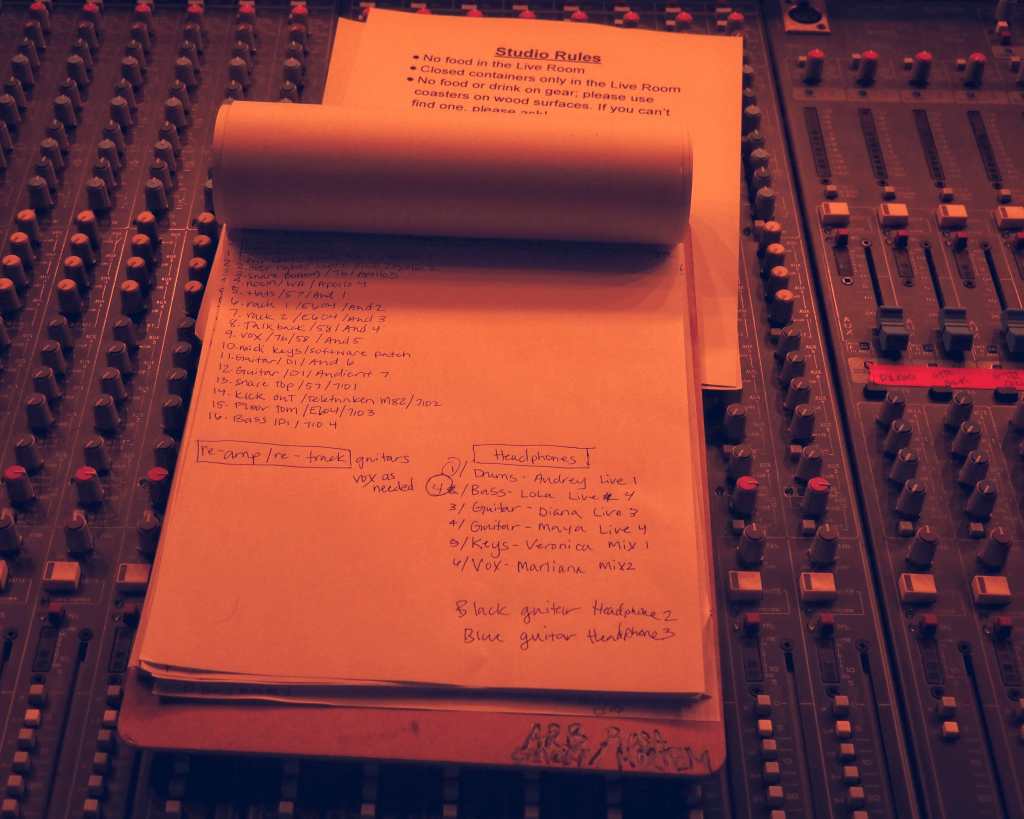 Studio Rules
• No food in the Live Room
• Closed containers only in the Live Room
• No food or drink on gear; please use
coasters on wood surfaces. If you can't
find one, please ask!
Snare Bottom / 76 / Apollo 3
Room / WA / Apollo 4
5. Hats / 57 / Aud 1
6. rack 1 / E604 / Aud 2
7. rack 2 / E604 / Aud 3
8. Talkback / 58 / Aud 4
9. VOX / 76 / 58 / Aud 5
10. mick keys / software patch
11. Guitar / DI / Aud 6
12. Guitar / DI / Audient 7
13. Snare Top / 57 / 7101
14. Kick OUT / Telefunken M82 / 7102
15. Floor Tom / E604 / 7103
16. Bass IDI / 710 4
re-amp / re-track guitars
vox as
needed
Headphones
1/ Drums - Audrey Live 1
4 / Bass - Lola Live 4
3/ Guitar - Diana Live 3
4/ Guitar - Maya Live 4
5/ Keys - Veronica Mix 1
6/ Vox - Marliana Mix2
Black guitar Headphone 2
Blue guitar Headphone 3